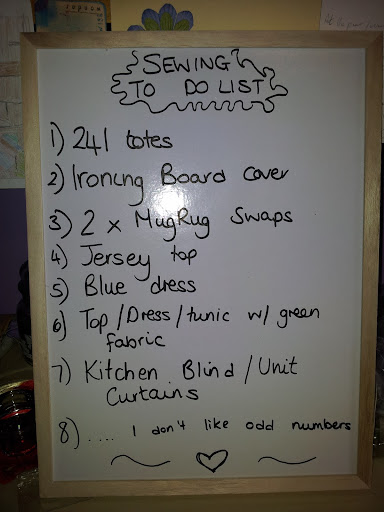 SEWING
TO DO LIST
1) 241 totes
2) Ironing Board cover
3) 2 x MugRug Swaps
4) Jersey top
5) Blue dress
6) Top/Dress/tunic w/ green
fabric
7) Kitchen Blind/Unit
Curtains
8) .... I don't like odd numbers